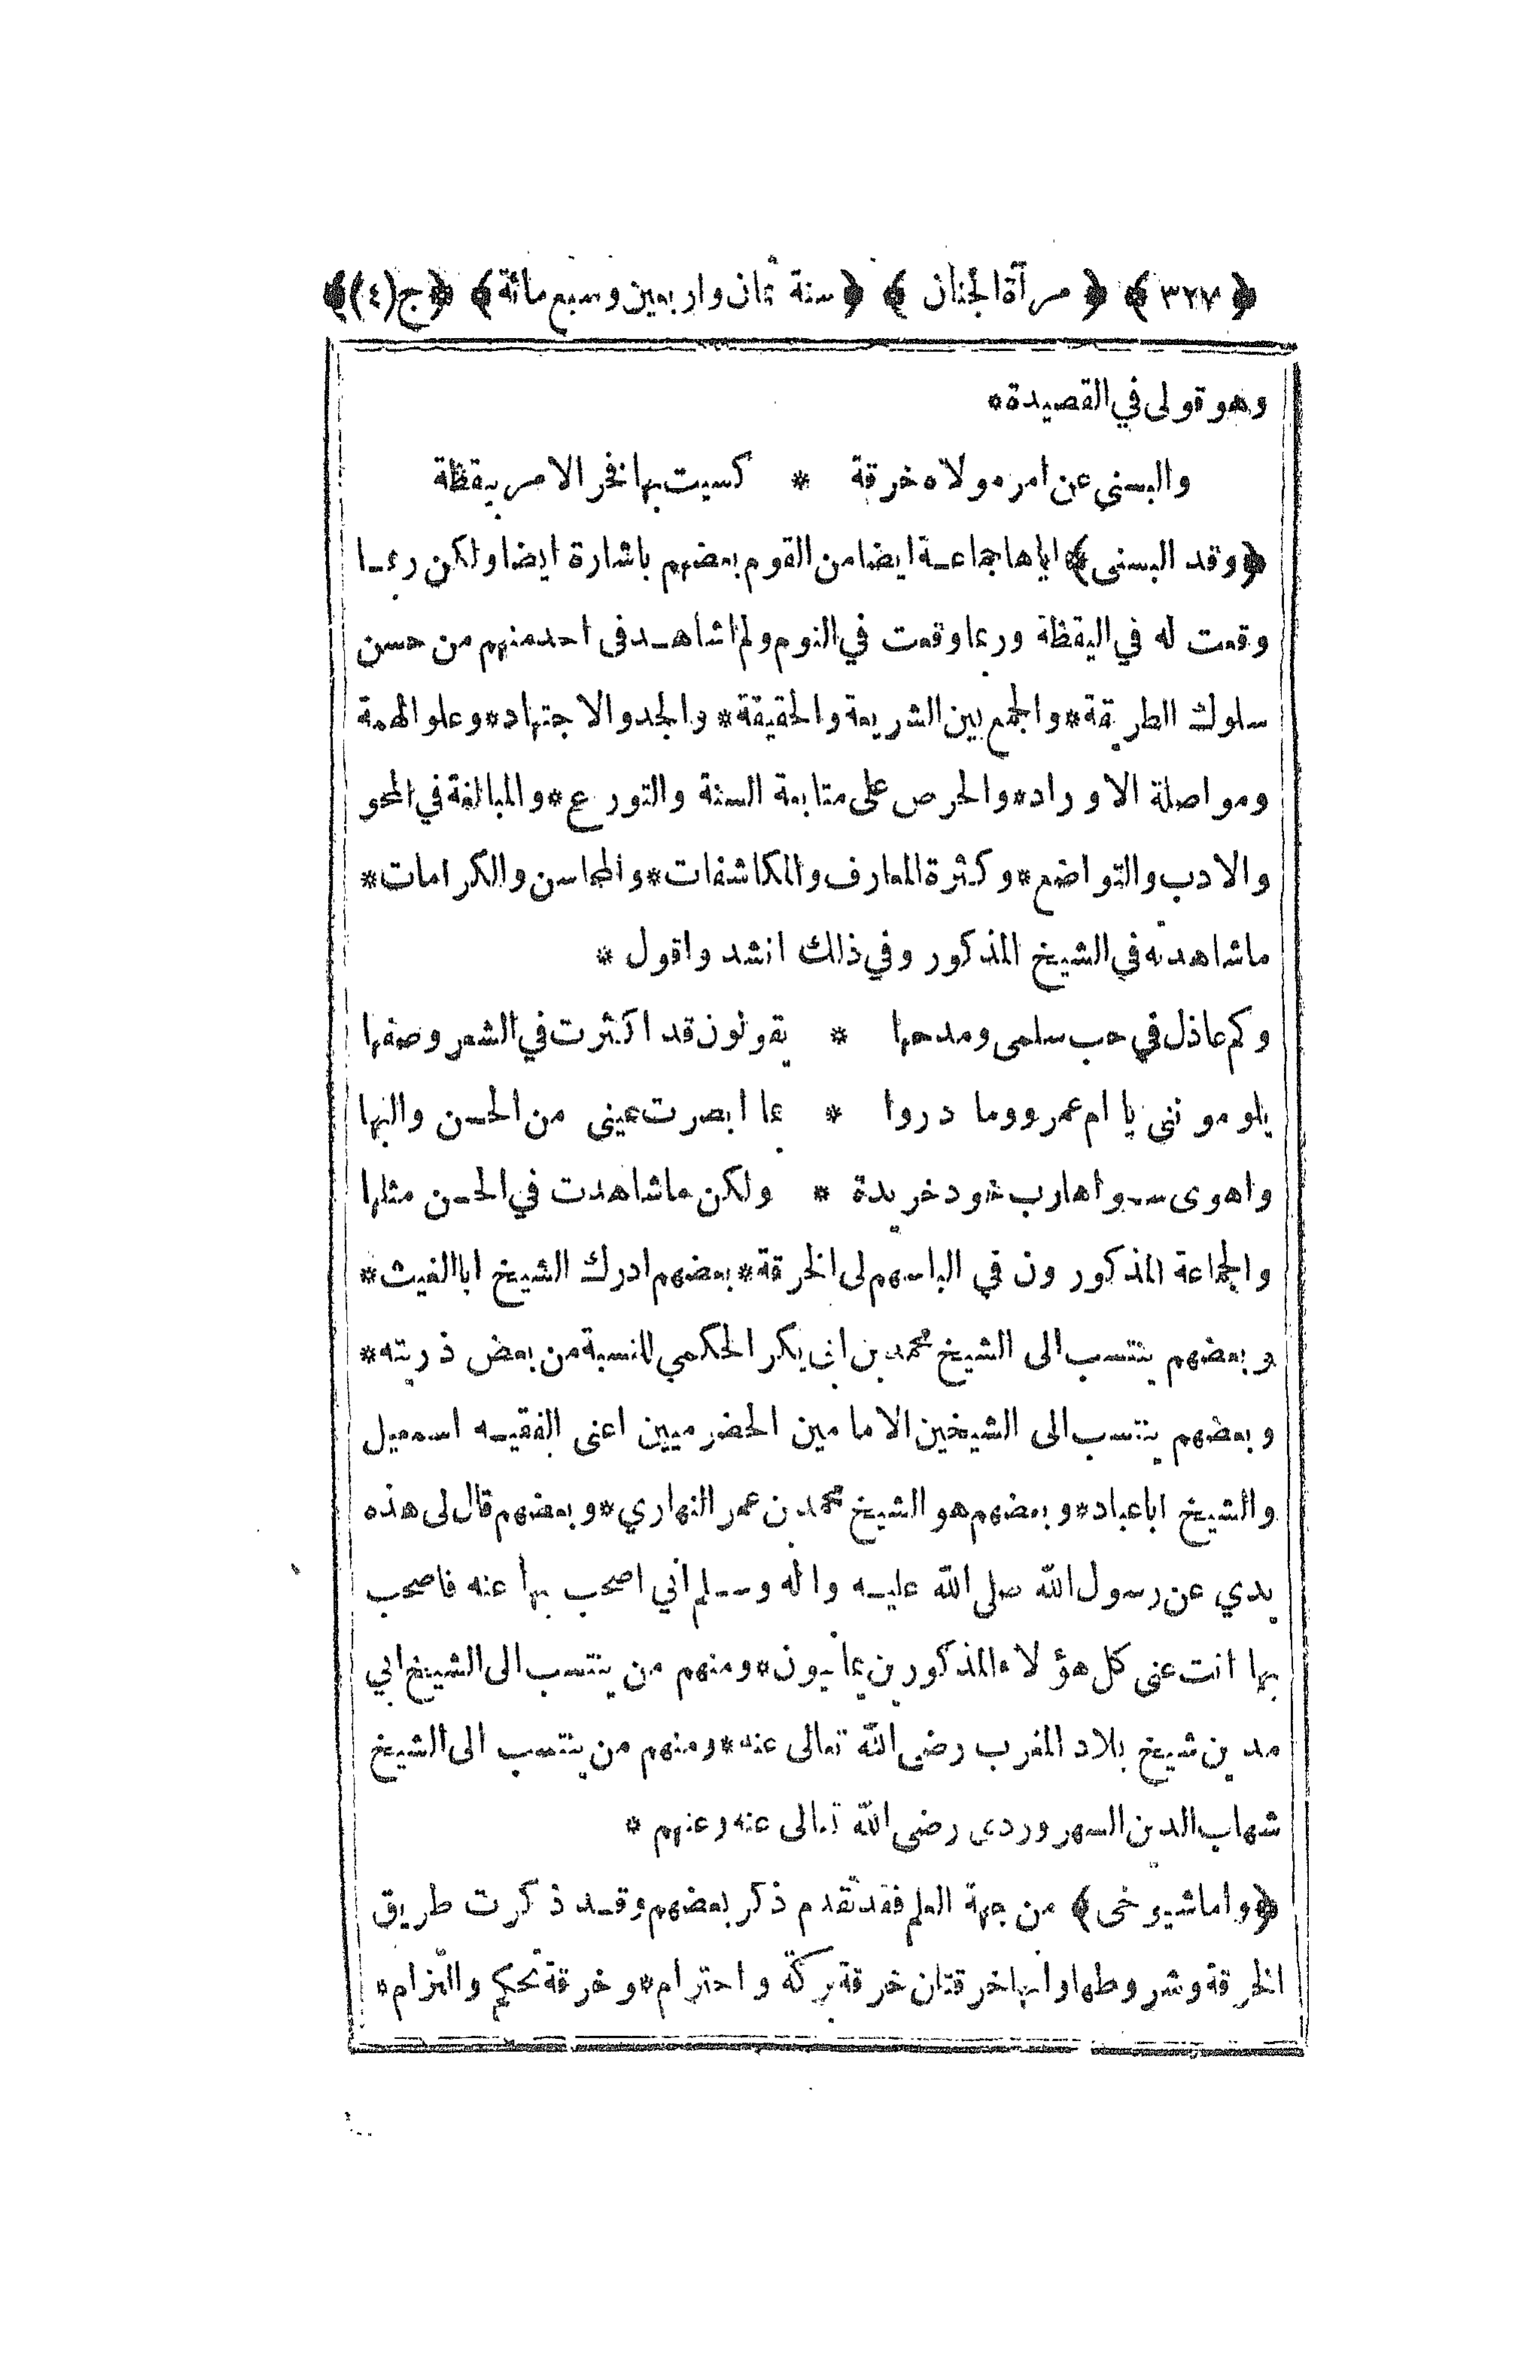 ﴿٣٢٧﴾ ﴿مرآة الجنان﴾ ﴿سنة ثمان واربعين وسبع مائة﴾ ﴿ج(٤)﴾
وهو قولى في القصيدة*
والبسنى عن امر مولاه خرقة * كسيت بها فخر الامر بيقظة
﴿وقد البسنى﴾ اياها جماعة ايضا من القوم بعضهم باشارة ايضا ولكن ربما
وقعت له في اليقظة وربما وقعت في النوم ولم اشاهد فى احد منهم من حسن
سلوك الطريقة*والجمع بين الشريعة والحقيقة*والجد والاجتهاد*وعلو الهمة
ومواصلة الاوراد*والحرص على متابعة السنة والتورع*والمبالغة في المحو
والادب والتواضع*وكثرة المعارف والمكاشفات*والمحاسن والكرامات*
ما شاهدته في الشيخ المذكور وفي ذلك انشد واقول *
وكم عاذل في حب سلمى ومدحها * يقولون قد اكثرت في الشعر وصفها
يلومونني يا ام عمرو وما دروا * بما ابصرت عينى من الحسن والبها
واهوى سواها رب خود خريدة * ولكن ما شاهدت في الحسن مثلها
والجماعة المذكورون في الباسهم لى الخرقة*بعضهم ادرك الشيخ ابا الغيث*
وبعضهم ينتسب الى الشيخ محمد بن ابى بكر الحكمي بالنسبة من بعض ذريته*
وبعضهم ينتسب الى الشيخين الامامين الحضرميين اعنى الفقيه اسمعيل
والشيخ ابا عباد*وبعضهم هو الشيخ محمد بن عمر النهاري*وبعضهم قال لى هذه
يدي عن رسول الله صلى الله عليه واله وسلم أني اصحب بها عنه فاصحب
بها انت عنى كل هؤلاء المذكورين يمانيون*ومنهم من ينتسب الى الشيخ ابي
مدين شيخ بلاد المغرب رضى الله تعالى عنه*ومنهم من ينتسب الى الشيخ
شهاب الدين السهروردى رضى الله تعالى عنه وعنهم *
﴿واما شيوخى﴾ من جهة العلم فقد تقدم ذكر بعضهم وقد ذكرت طريق
الخرقة وشروطها وأنها خرقتان خرقة بركة واحترام*وخرقة تحكيم والتزام*